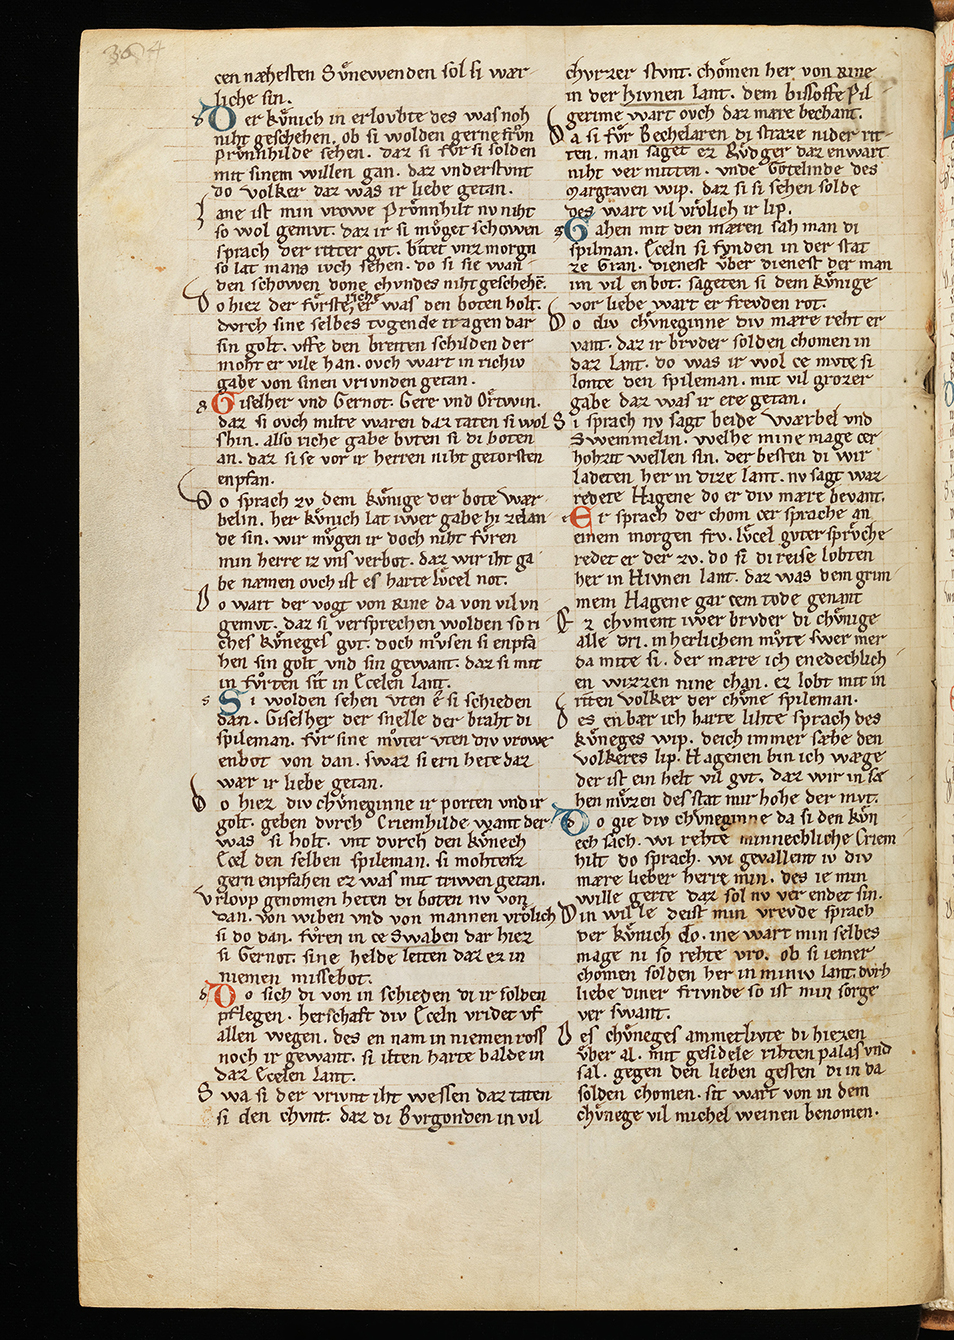 364
cen næhesten Svͦnewenden sol si wær
liche sin.
Der kvͦnich in erlovbte des was noh
niht geschehen. ob si wolden gerne frvͦn
prvͦnnhilde sehen. daz si fvͦr si solden
mit sinem willen gan. daz vnderstvnt
do volker daz was ir liebe getan.
Jane ist min vrowe Prǒnnhilt nv niht
so wol gemvt. daz ir si mvͦget schowen
sprach der ritter gvt. bitet vnz morgn
so lat mans ivch sehen. do si sie wan
den schowen done chvndes niht geschehē.
Do hiez der fvͦrste riche er was den boten holt.
dvrch sine selbes tvgende tragen dar
sin golt. vffe den breiten schilden der
moht er vile han. ovch wart in richiv
gabe von sinen vrivnden getan.
Giselher vnd Gernot. Gere vnd Ortwin.
daz si ovch milte waren daz taten si wol
shin. also riche gabe bvten si di boten
an. daz si se vor ir herren niht getorsten
enpfan.
Do sprach zv dem kvͦnige der bote Wær
belin. her kvͦnich lat iwer gabe hi zelan
de sin. wir mvͦgen ir doch niht fvͦren
min herre iz vns verbot. daz wir iht ga
be næmen ovch ist es harte lvͦcel not.
Do wart der vogt von Rine da von vil vn
gemvt. daz si versprechen wolden so ri
ches kvͦneges gvt. doch mvͦsen si enpfa
hen sin golt vnd sin gewant. daz si mit
in fvͦrten sit in Ecelen lant.
Si wolden sehen vten e si schieden
dan. Giselher der snelle der braht di
spileman. fvͦr sine mvͦter vten div vrowe
enbot von dan. swaz si ern hete daz
wær ir liebe getan.
Do hiez div chvͦneginne ir porten vnd ir
golt. geben dvrch Criemhilde want der
was si holt. vnt dvrch den kvͦnech
Ecel den selben spileman. si mohtenz
gern enpfahen ez was mit triwen getan.
Vrlovp genomen heten di boten nv von
dan. von wiben vnd von mannen vrǒlich
si do dan. fvͦren in ce Swaben dar hiez
si Gernot. sine helde leiten daz ez in
niemen missebot.
Do sich di von in schieden di ir solden
pflegen. herschaft div Eceln vridet vf
allen wegen. des en nam in niemen ross
noch ir gewant. si ilten harte balde in
daz Ecelen lant.
Swa si der vrivnt iht wessen daz taten
si den chvnt. daz di Bvrgonden in vil
chvrzer stvnt. chǒmen her von Rine
in der Hivnen lant. dem bissoffe Pil
gerime wart ovch daz mære bechant.
Da si fvͦr Bechelaren di straze nider rit
ten. man saget ez Rvͦdger daz enwart
niht vermitten. vnde Gǒtelinde des
Margraven wip. daz si si sehen solde
des wart vil vrǒlich ir lip.
Gahen mit den mæren sah man di
spilman. Eceln si fvnden in der stat
ze Gran. dienest vber dienest der man
im vil enbot. sageten si dem kvͦnige
vor liebe wart er frevden rot.
Do div chvͦneginne div mære reht er
vant. daz ir brvder solden chomen in
daz lant. do was ir wol ce mvte si
lonte den spileman. mit vil grozer
gabe daz was ir ere getan.
Si sprach nv sagt beide Wærbel vnd
Swemmelin. welhe mine mage cer
hohzit wellen sin. der besten di wir
ladeten her in dize lant. nv sagt waz
redete Hagene do er div mære bevant.
Er sprach der chom cer sprache an
einem morgen frv. lvͦcel gvter sprvͦche
redet er der zv. do si di reise lobten
her in Hivnen lant. daz was dem grim
mem Hagene gar cem tode genant
Ez chvment iwer brvder di chvͦnige
alle dri. in herlichem mvͦte swer mer
da mite si. der mære ich enedechlich
en wizzen nine chan. ez lobt mit in
riten volker der chvͦne spileman.
Des en bær ich harte lihte sprach des
kvͦneges wip. deich immer sæhe den
volkeres lip. Hagenen bin ich wæge
der ist ein helt vil gvt. daz wir in se
hen mvͦzen des stat mir hohe der mvt.
Do gie div chvͦneginne da si den kvͦn
ech sach. wi rehte minnechliche Criem
hilt do sprach. wi gevallent iv div
mære lieber herre min. des ie min
wille gerte daz sol nv verendet sin.
Din wille deist min vrevde sprach
der kvͦnich do. ine wart min selbes
mage ni so rehte vro. ob si iemer
chomen solden her in miniv lant. dvrh
liebe diner frivnde so ist min sorge
ver swant.
Des chvͦneges ammetlivte di hiezen
vͦber al. mit gesidele rihten palas vnd
sal. gegen den lieben gesten di in da
solden chomen. sit wart von in dem
chvͦnege vil michel weinen benomen.